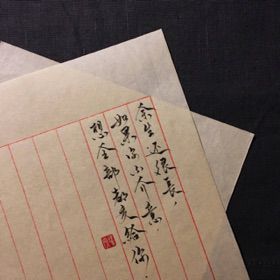 余生还很长，
如果你不介意，
想全部都交给你.